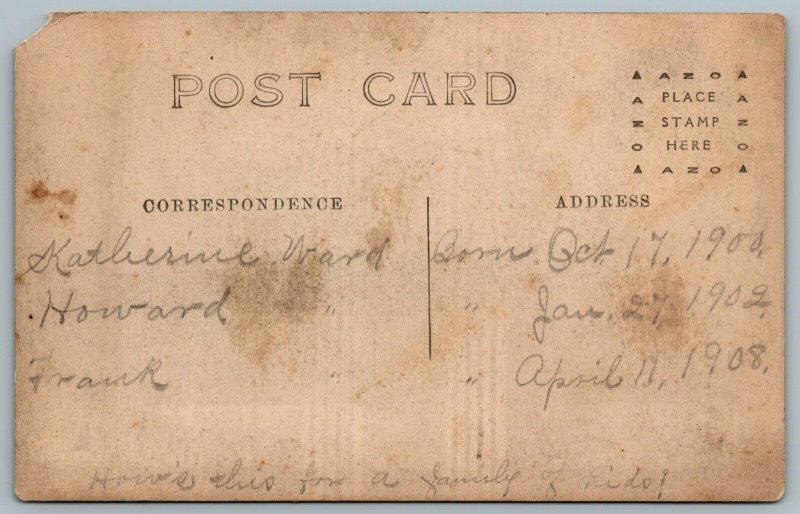 POST CARD
▲ AZO ▲
PLACE
STAMP
HERE
▲ AZO ▲
AZO
AZO
CORRESPONDENCE
ADDRESS
Katherine Ward Born Oct 17, 1900.
Howard " " Jan. 27, 1902.
Frank " " April 11, 1908.
How's this for a family of kids!